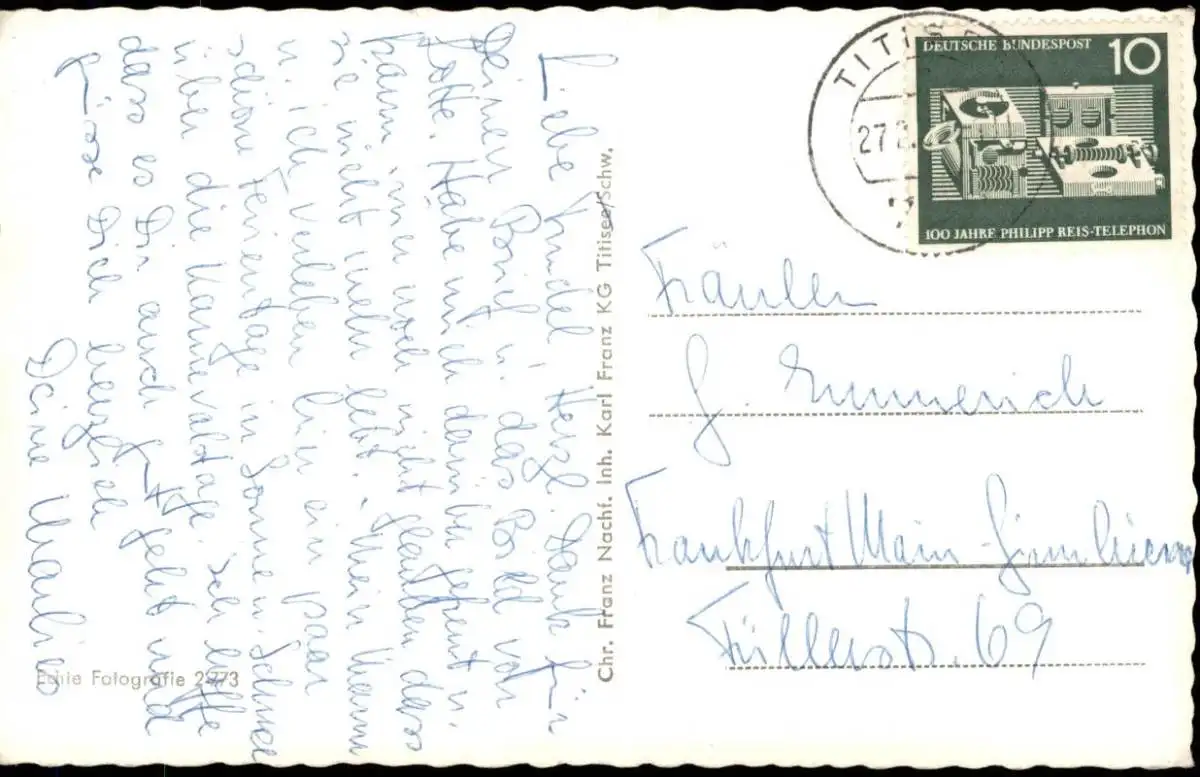 Liebe Kindel! Herzl. Dank für
Deinen Brief u. das Bild von
Lotte. Habe mich darüber gefreut u.
kann immer noch nicht glauben dass
sie nicht mehr lebt. Mein Mann
u. ich verleben hier ein paar
schöne Ferientage in Sonne u. Schnee
über die Karnevalstage. Ich hoffe
dass es Dir auch gut geht und
grüsse Dich herzlich
Deine Marlies
Echte Fotografie 2773
Chr. Franz Nachf. Inh. Karl Franz KG Titisee/Schw.
TITIS
27.2.
DEUTSCHE BUNDESPOST 10
100 JAHRE PHILIPP REIS-TELEPHON
Fräulein
G. Emmerich
Frankfurt Main-Ginnheim
Füllerstr. 69